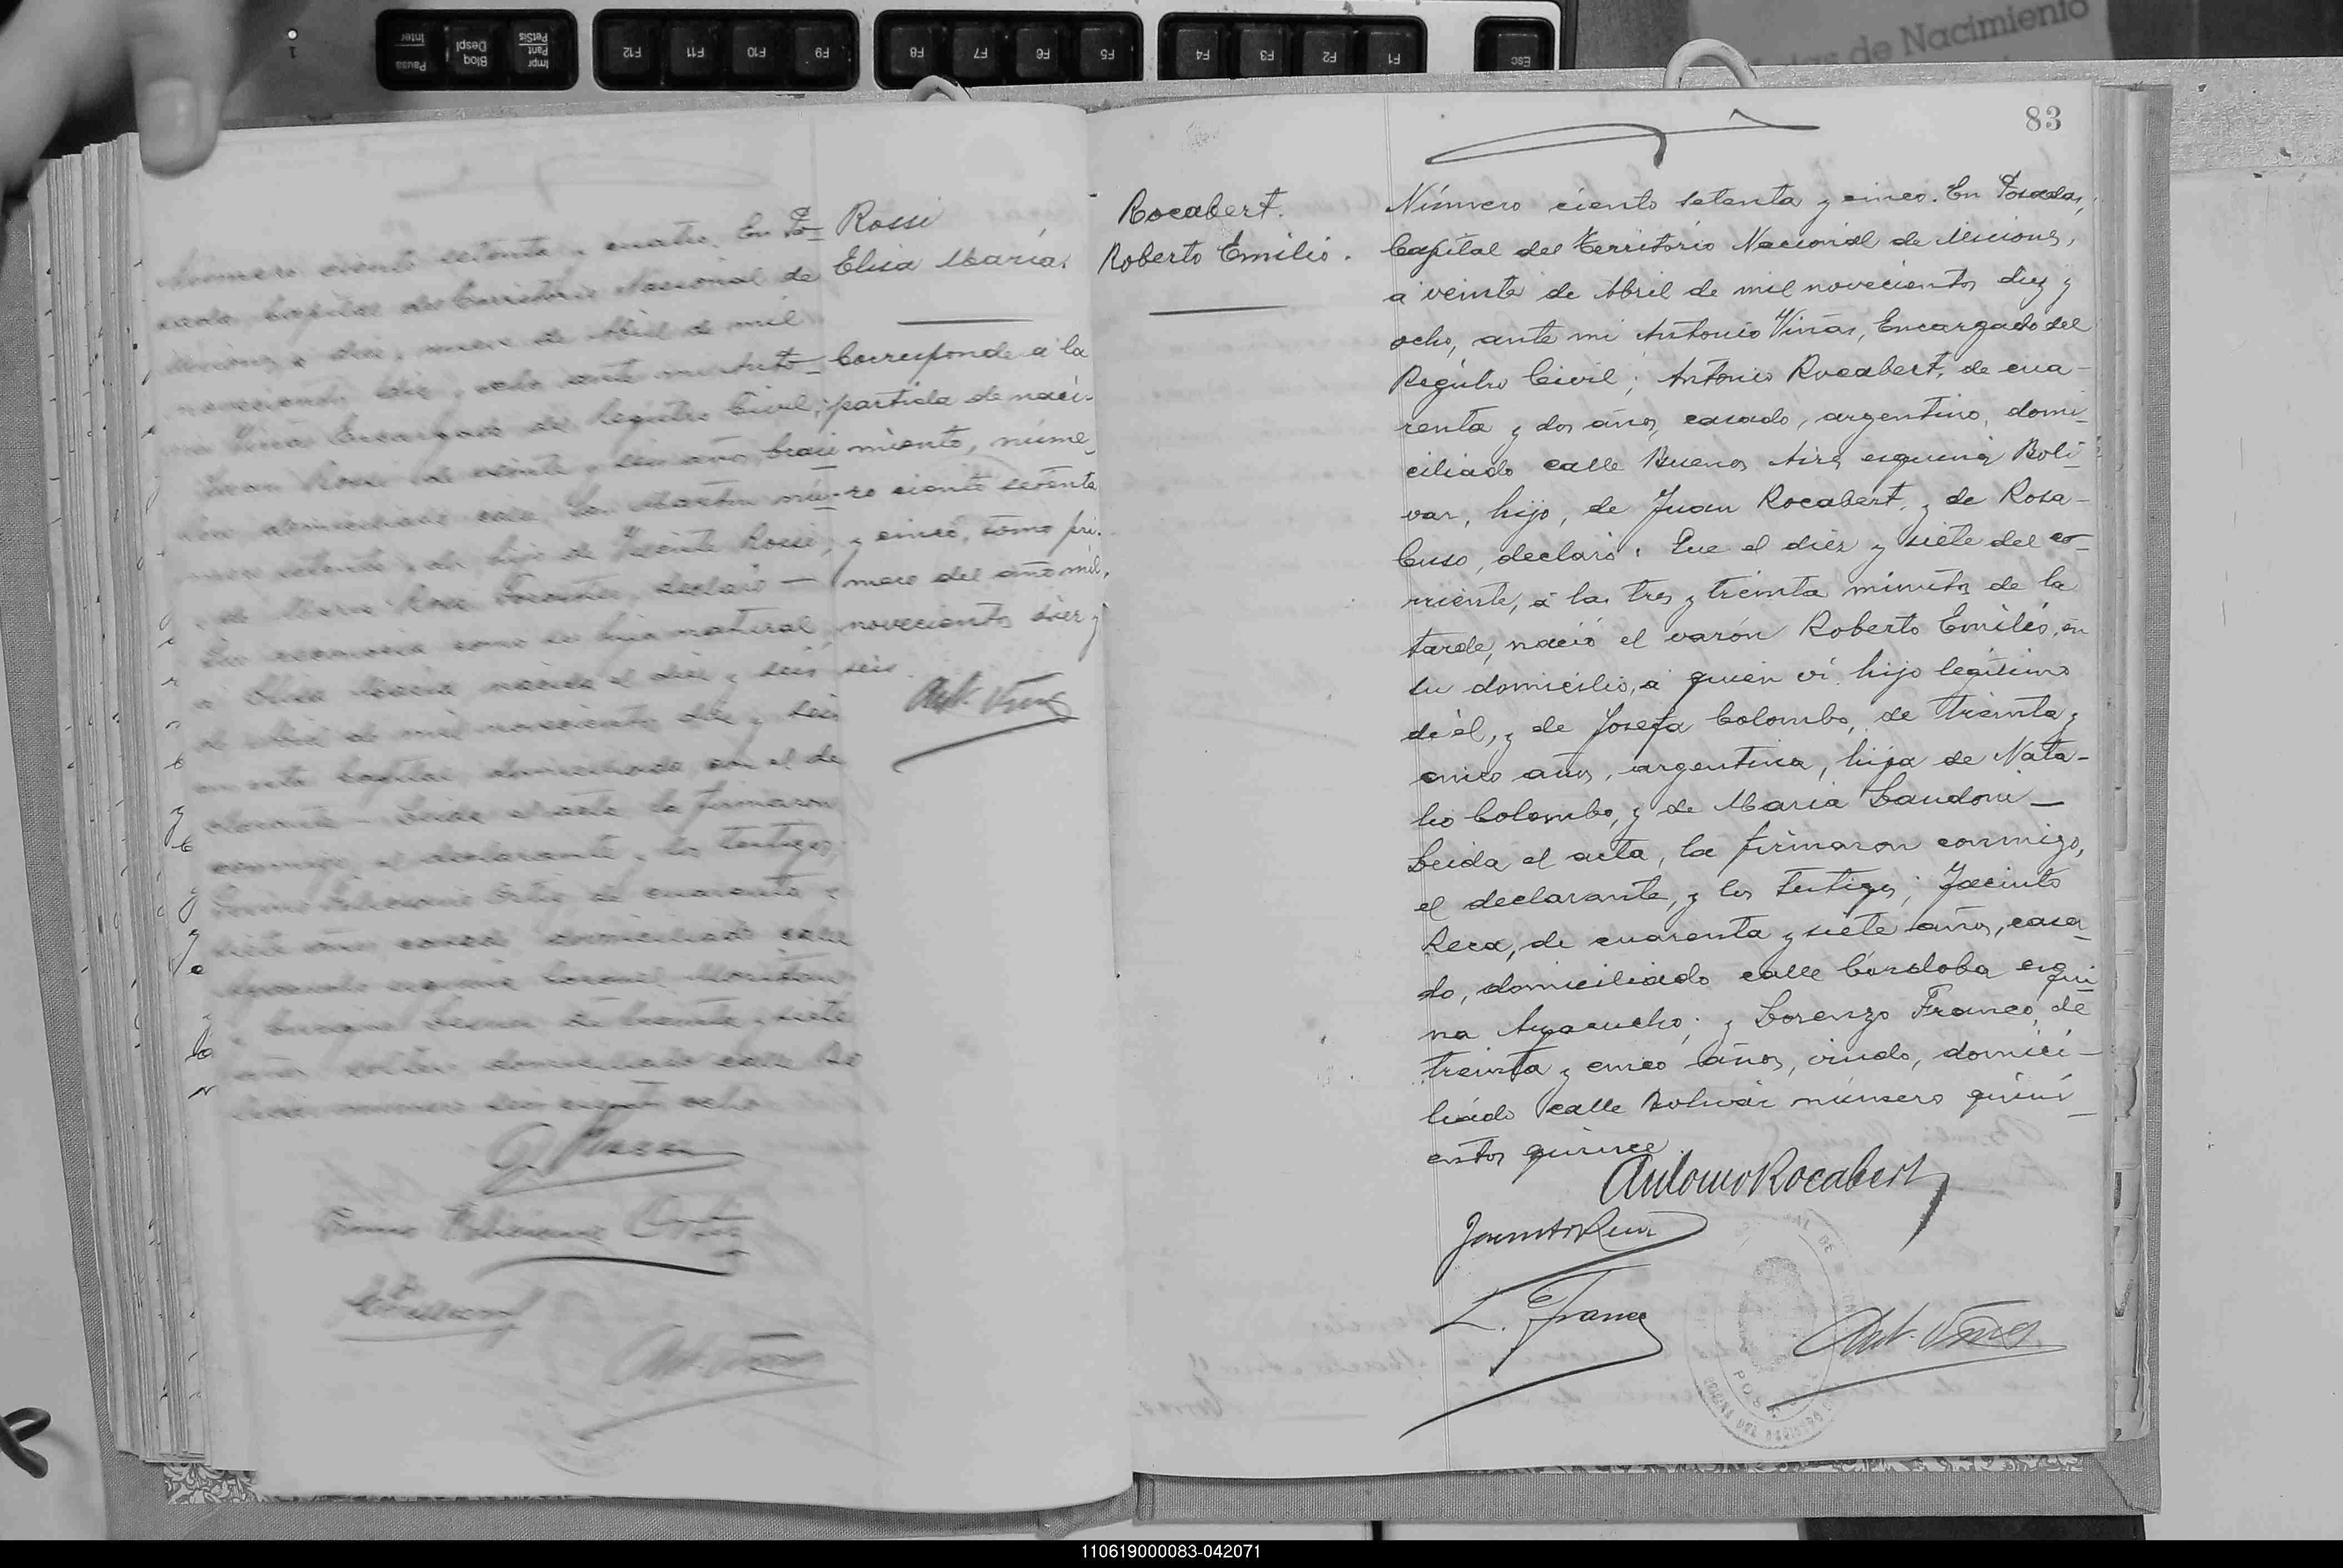 Pausa
Inter
Bloq
Despl
Impr
Pant
PetSis
F12
F11
F10
F9
F8
F7
F6
F5
F4
F3
F2
F1
Esc
1
de Nacimiento
Número ciento setenta y cuatro. En Po-
sadas, Capital del Territorio Nacional de
Misiones, a diez y nueve de Abril de mil
novecientos diez y ocho, ante mi Anto-
nio Viñas Encargado del Registro Civil;
Juan Rossi de veinte y seis años, brasi-
lero domiciliado calle San Martin nú-
mero setenta y dos hijo de Vicente Rossi,
y de Maria Rosa, declaró —
Que reconocía como su hija natural,
a Elisa Maria nacida el diez y seis
de Abril de mil novecientos diez y seis
en esta Capital, domiciliada en el de
clarante — Leida el acta la firmaron
conmigo, el declarante y los testigos;
Feliciano Ortiz de cuarenta y
siete años, casado, domiciliado calle
Ayacucho esquina Coronel
y Enrique de treinta y siete
años, soltero domiciliado calle
número seis cientos ocho
Rossi
Elisa María.
Corresponde a la
partida de naci-
miento, núme-
ro ciento setenta
y cinco, tomo pri-
mero del año mil,
novecientos diez y
seis.
Ant. Viñas
J. Rossi
Feliciano Ortiz
Ant. Viñas
83
Rocabert.
Roberto Emilio.
Número ciento setenta y cinco. En Posadas,
Capital del Territorio Nacional de Misiones,
a veinte de Abril de mil novecientos diez y
ocho, ante mi Antonio Viñas, Encargado del
Registro Civil; Antonio Rocabert, de cua-
renta y dos años, casado, argentino, domi-
ciliado calle Buenos Aires esquina Boli-
var, hijo, de Juan Rocabert, y de Rosa-
Cuso, declaró: Que el diez y siete del co-
rriente, á las tres y treinta minutos de la
tarde, nació el varón Roberto Emilio, en
su domicilio, a quien ví hijo legítimo
de él, y de Josefa Colombo, de treinta y
cinco años, argentina, hija de Nata-
lio Colombo, y de Maria Landoni —
Leida el acta, la firmaron conmigo,
el declarante, y los testigos; Jacinto
Rera, de cuarenta y siete años, casa-
do, domiciliado calle Córdoba esqui
na Ayacucho; y Lorenzo Franco, de
treinta y cinco años, viudo, domici-
liado calle Bolivar número quini-
entos quince
Antonio Rocabert
L. Franco
Ant. Viñas
110619000083-042071